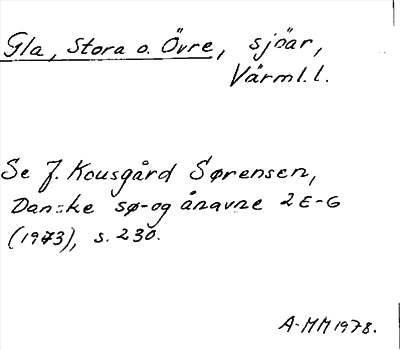 Gla, Stora o. Övre, sjöar,
Värml. l.
Se J. Kousgård Sørensen,
Danske sø- og ånavne 2 E-G
(1973), s. 230.
A-MM 1978.